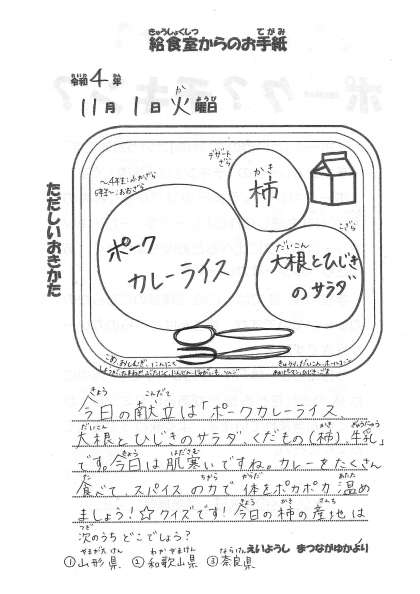 給食室からのお手紙
令和4年
11月1日火曜日
ただしいおきかた
～4年生:ふかざら
5年生～:おおざら
デザートざら
柿
こざら
ポーク
カレーライス
大根とひじき
のサラダ
こめ、おしむぎ、にんにく
今日の献立は「ポークカレーライス、
大根とひじきのサラダ、くだもの(柿)、牛乳」
です。今日は肌寒いですね。カレーをたくさん
食べて、スパイスの力で体をポカポカ温め
ましょう!☆クイズです!今日の柿の産地は
次のうちどこでしょう?
えいようし まつながゆかより
①山形県 ②和歌山県 ③奈良県